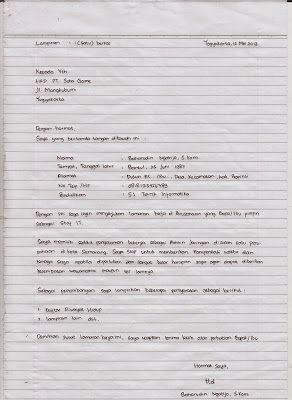 Lampiran : 1 (Satu) berkas Yogyakarta, 12 Mei 2013
Kepada Yth.
HRD PT. Sota Game
Jl. Mangkubumi
Yogyakarta
Dengan hormat,
Saya yang bertanda tangan dibawah ini :
Nama : Baharudin Ngatijo, S.Kom
Tempat, Tanggal lahir : Bantul, 25 Juni 1987
Alamat : Dusun RT /RW , Desa, Kecamatan, Kab, Provinsi
No Tlp /HP :
Pendidikan : S1 Teknik Informatika
Dengan ini saya ingin mengajukan lamaran kerja di Perusahaan yang Bapak/Ibu pimpin
sebagai Staf IT.
Saya memiliki sedikit pengalaman bekerja sebagai Admin Jaringan di salah satu peru-
sahaan di kota Semarang. Saya siap untuk memberikan
tenaga saya apabila diperlukan dan sangat besar harapan saya agar dapat diberikan
kesempatan wawancara maupun tes lainnya.
Sebagai pertimbangan saya lampirkan beberapa persyaratan sebagai berikut :
1. Daftar Riwayat Hidup
2. lampiran lain dst.
Demikian surat lamaran kerja ini, saya ucapkan terima kasih atas perhatian Bapak/Ibu
Hormat Saya,
ttd
Baharudin Ngatijo, S.Kom